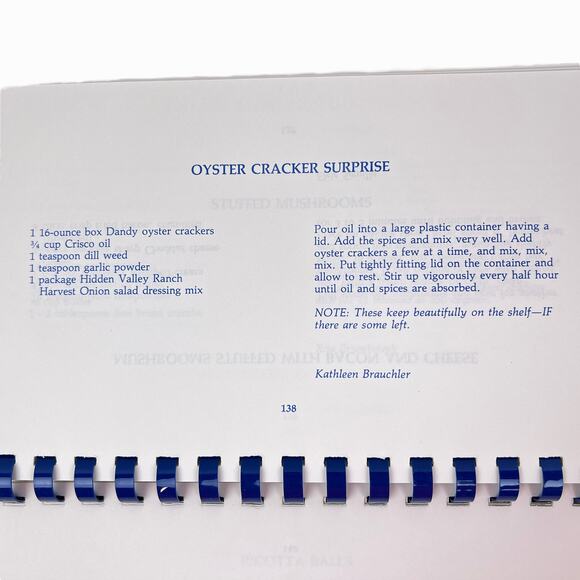 OYSTER CRACKER SURPRISE
1 16-ounce box Dandy oyster crackers
¾ cup Crisco oil
1 teaspoon dill weed
1 teaspoon garlic powder
1 package Hidden Valley Ranch
Harvest Onion salad dressing mix
Pour oil into a large plastic container having a
lid. Add the spices and mix very well. Add
oyster crackers a few at a time, and mix, mix,
mix. Put tightly fitting lid on the container and
allow to rest. Stir up vigorously every half hour
until oil and spices are absorbed.
NOTE: These keep beautifully on the shelf—IF
there are some left.
MUSHROOMS STUFFED WITH BACON AND CHEESE
Kathleen Brauchler
138
RICOTTA BALLS